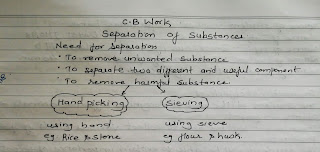 C.B Work
Separation of Substances
Need for Separation
• To remove unwanted Substance
• To separate two different and useful component
• To remove harmful substance
Hand picking Sieving
using hand using sieve
eg Rice & stone eg flour & husk